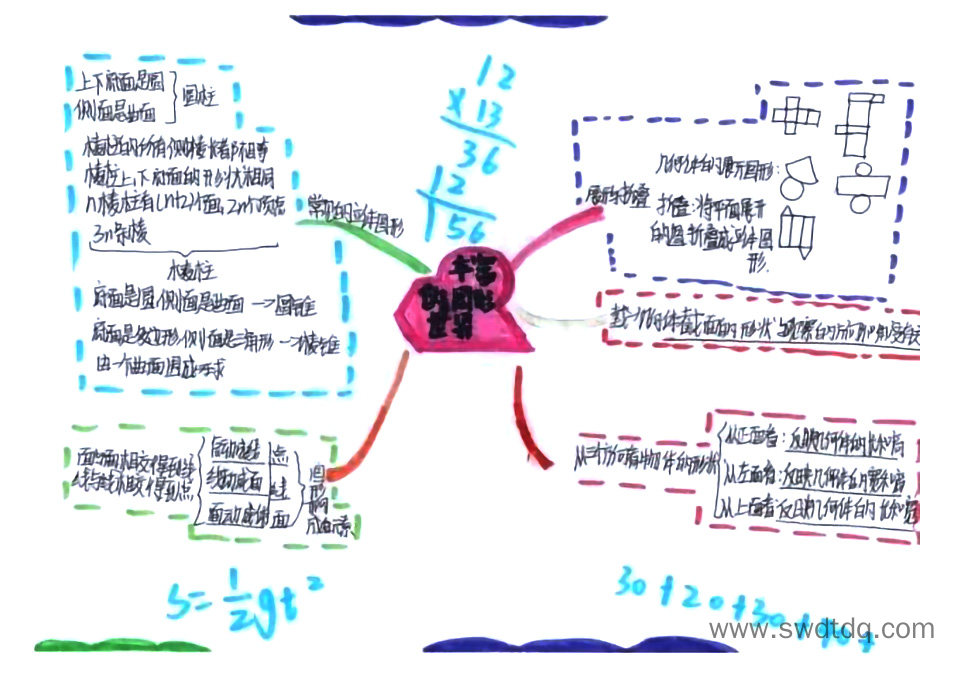 上下底面是圆
侧面是曲面
圆柱
棱柱的所有侧棱长都相等
棱柱上、下底面的形状相同
n棱柱有(n+2)个面,2n个顶点
3n条棱
棱柱
底面是圆,侧面是曲面 → 圆锥
底面是多边形,侧面是三角形 → 棱锥
由一个曲面围成 → 球
常见的立体图形
12
×13
36
12
156
丰富
的图形
世界
展开与折叠
几何体的展开图形:
折叠:将平面展开
的图折叠成立体图
形.
面与面相交得到线
线与线相交得到点
点动成线
线动成面
面动成体
点
线
面
图
形
构
成元素
从三个方向看物体的形状
从正面看:反映几何体的长和高
从左面看:反映几何体的宽和高
从上面看:反映几何体的长和宽
S=1/2gt²
30+20+30+
www.swdtdq.com